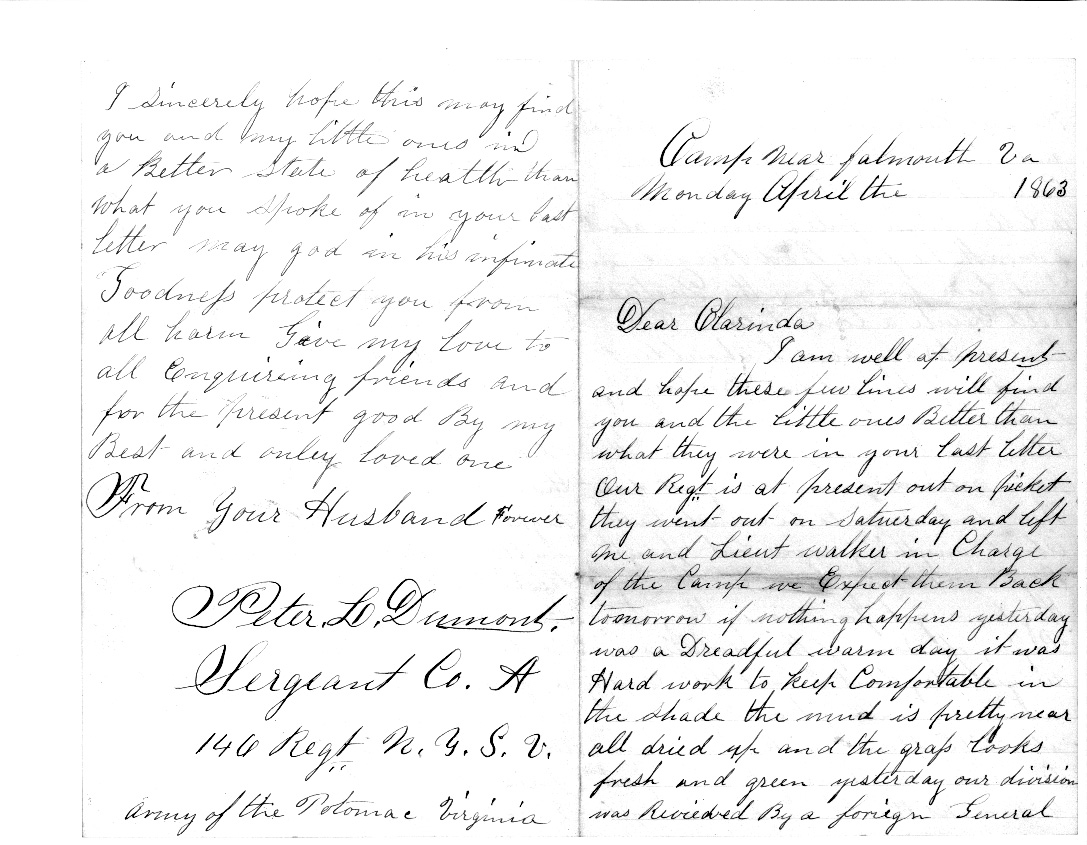 Camp Near falmouth Va
Monday April the 1863
Dear Clarinda
I am well at present
and hope these few lines will find
you and the little ones Better than
what they were in your last letter
Our Regt is at present out on picket
they went out on Saturday and left
me and Lieut walker in Charge
of the Camp we Expect them Back
tomorrow if nothing happens yesterday
was a Dreadful warm day it was
Hard work to keep Comfortable in
the shade the mud is pretty near
all dried up and the grass looks
fresh and green yesterday our division
was Reviewed By a foriegn General
I sincerely hope this may find
you and my little ones in
a Better state of health than
what you spoke of in your last
letter may god in his infinate
Goodness protect you from
all harm Give my love to
all Enquireing friends and
for the present good By my
Best and onley loved one
From Your Husband Forever
Peter L. Dumont.
Sergeant Co. A
146 Regt N. Y. S. V.
Army of the Potomac Virginia